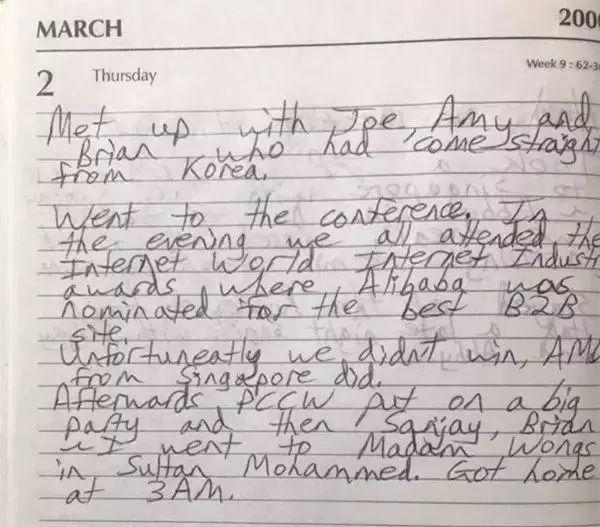 MARCH 200
2 Thursday Week 9 : 62-30
Met up with Joe, Amy and
Brian who had come straight
from Korea.
Went to the conference. In
the evening we all attended the
Internet World Internet Industr
awards, where Alibaba was
nominated for the best B2B
site.
Unfortuneatly we didn't win, AM
from Singapore did.
Afterwards PCCW put on a big
party and then Sanjay, Brian
& I went to Madam Wongs
in Sultan Mohammed. Got home
at 3AM.